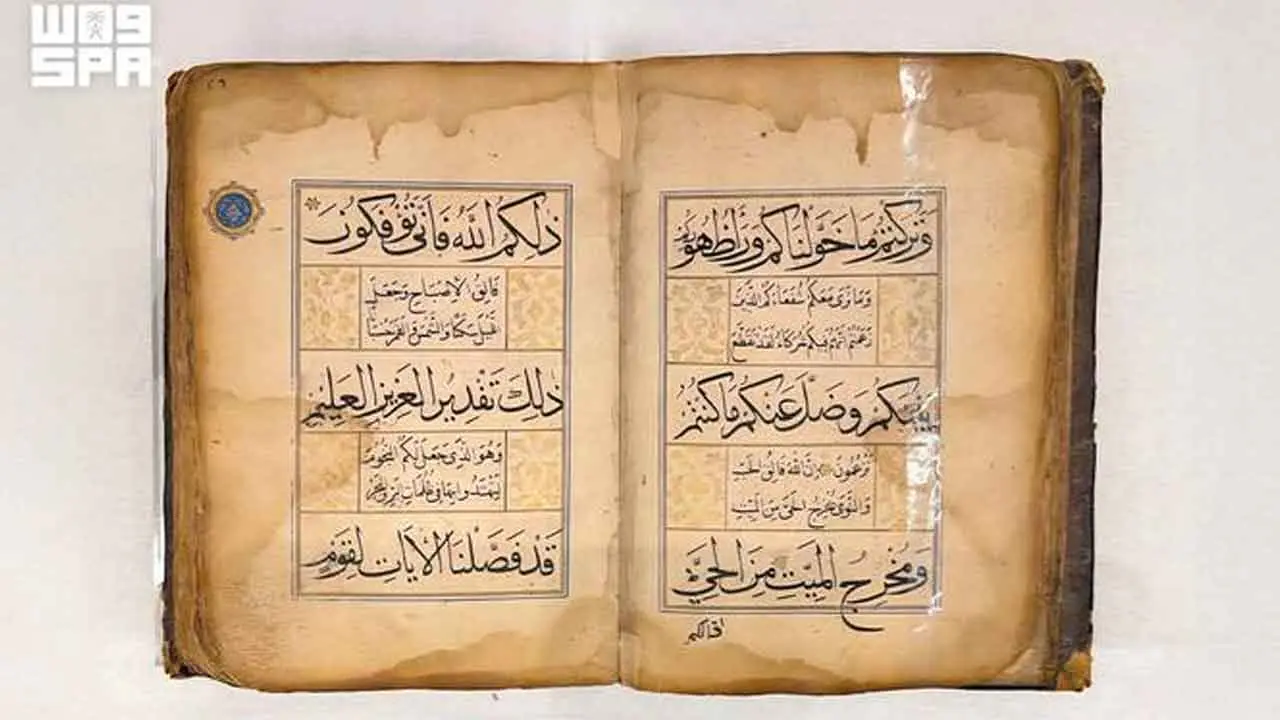 واس
SPA
وَتَرَكْتُمْ مَا خَوَّلْنَاكُمْ وَرَاءَ ظُهُورِكُمْ
وَمَا نَرَى مَعَكُمْ شُفَعَاءَكُمُ الَّذِينَ
زَعَمْتُمْ أَنَّهُمْ فِيكُمْ شُرَكَاءُ لَقَدْ تَقَطَّعَ
بَيْنَكُمْ وَضَلَّ عَنْكُمْ مَا كُنْتُمْ
تَزْعُمُونَ إِنَّ اللَّهَ فَالِقُ الْحَبِّ
وَالنَّوَى يُخْرِجُ الْحَيَّ مِنَ الْمَيِّتِ
وَمُخْرِجُ الْمَيِّتِ مِنَ الْحَيِّ
ذلكم
ذَلِكُمُ اللَّهُ فَأَنَّى تُؤْفَكُونَ
فَالِقُ الْإِصْبَاحِ وَجَعَلَ
اللَّيْلَ سَكَنًا وَالشَّمْسَ وَالْقَمَرَ حُسْبَانًا
ذَلِكَ تَقْدِيرُ الْعَزِيزِ الْعَلِيمِ
وَهُوَ الَّذِي جَعَلَ لَكُمُ النُّجُومَ
لِتَهْتَدُوا بِهَا فِي ظُلُمَاتِ الْبَرِّ وَالْبَحْرِ
قَدْ فَصَّلْنَا الْآيَاتِ لِقَوْمٍ